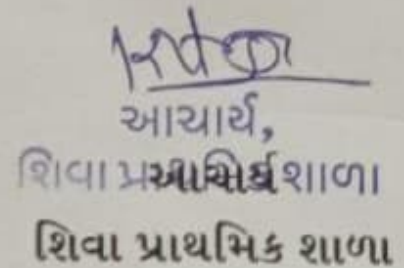 આચાર્ય,
શિવા પ્રાથમિક શાળા
આચાર્ય
શિવા પ્રાથમિક શાળા